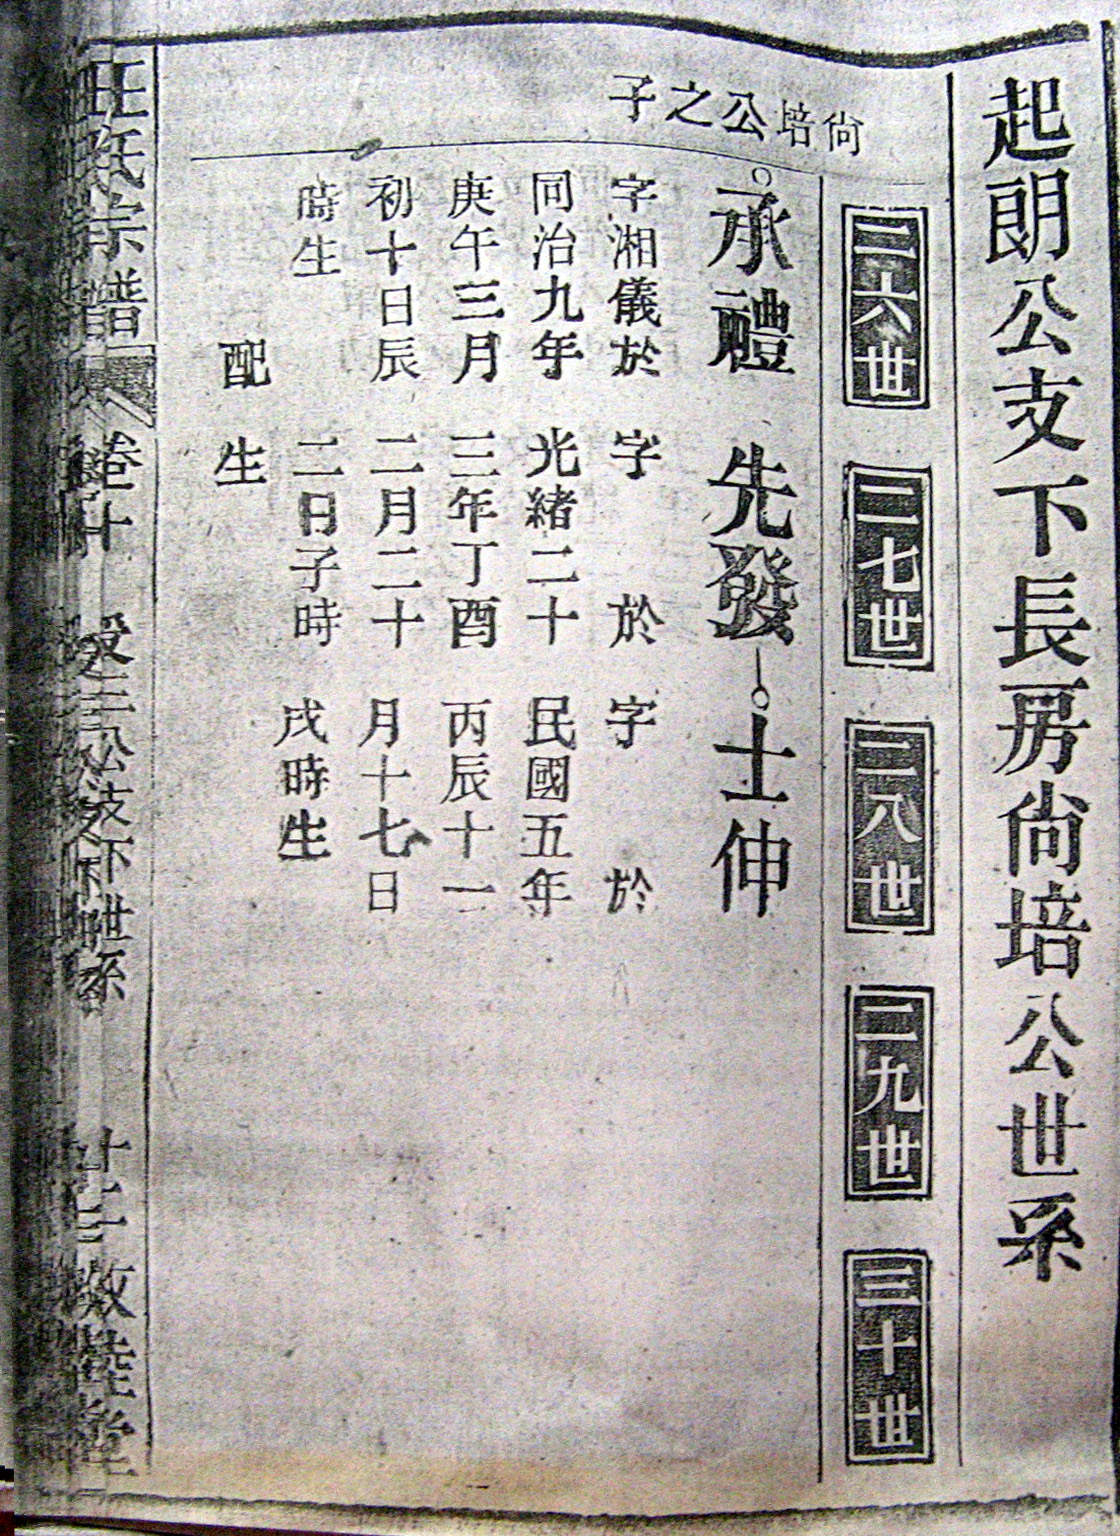 起朗公支下長房尚培公世系
二六世
二七世
二八世
二九世
三十世
尚培公之子
承禮
字湘儀於
同治九年
庚午三月
初十日辰
時生
配
先發
字 於
光緒二十
三年丁酉
二月二十
二日子時
生
士伸
字 於
民國五年
丙辰十一
月十七日
戌時生
宗譜
卷十
公支下世系